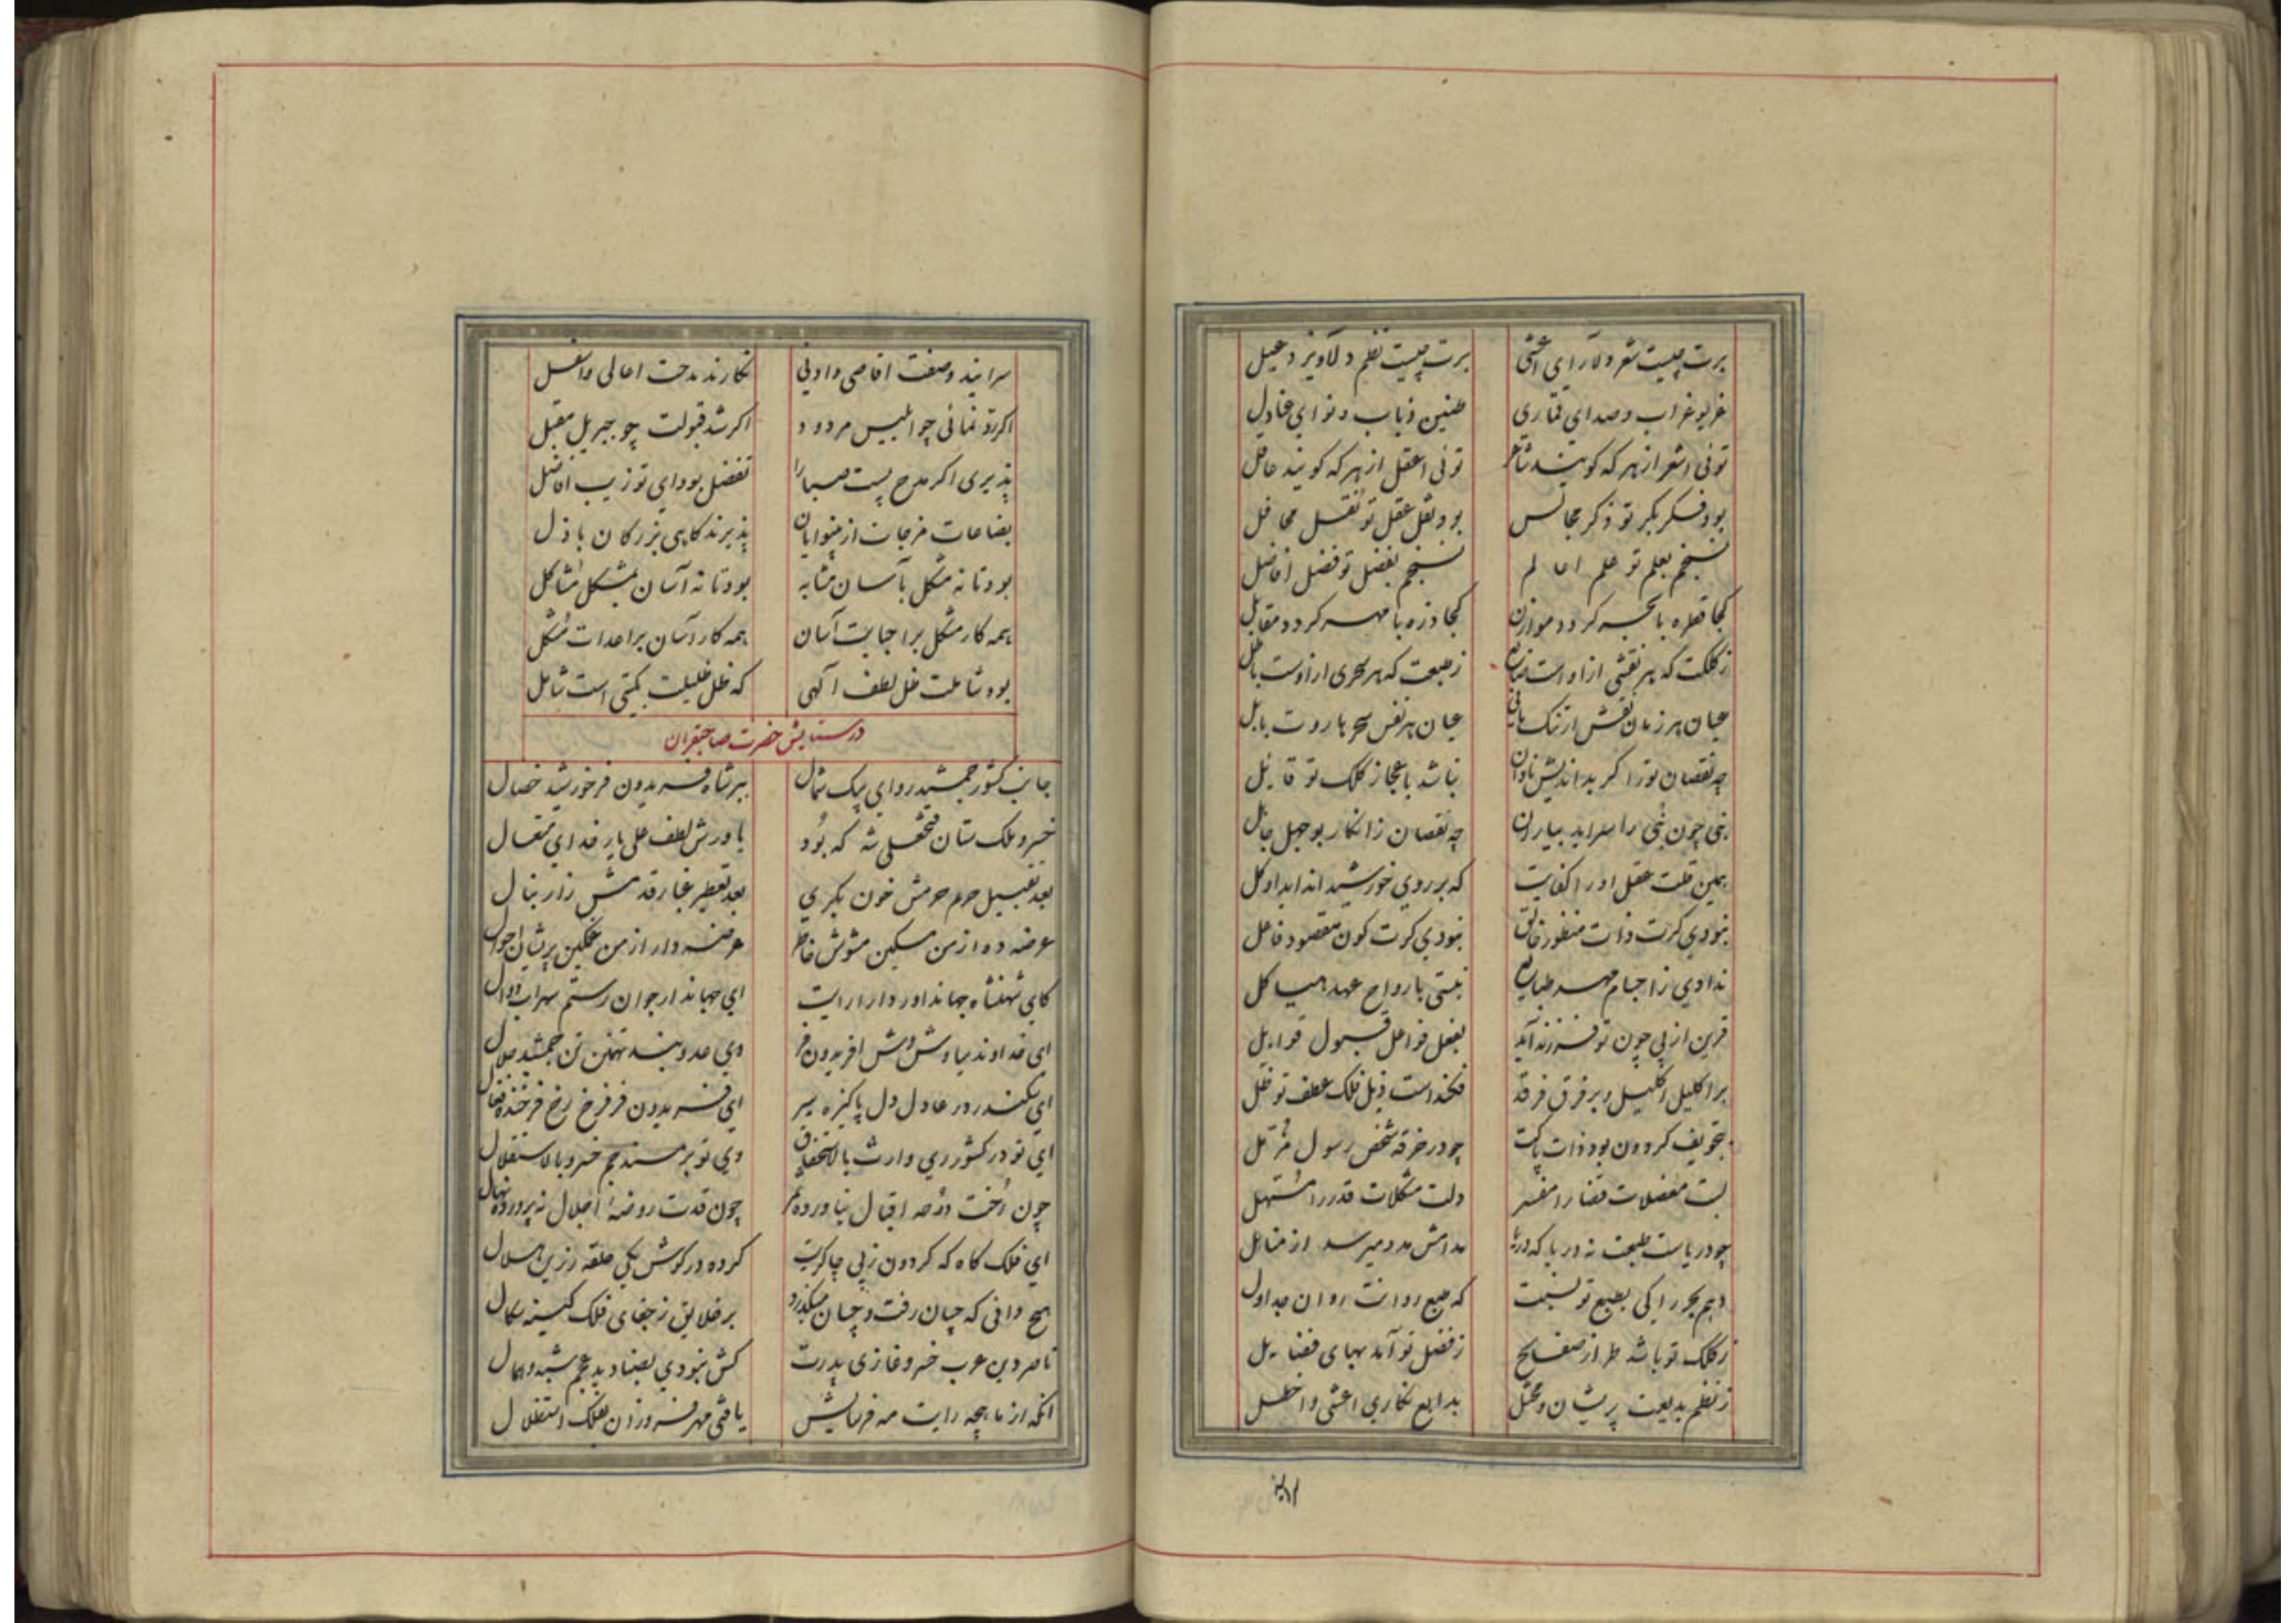 برت چیست شعر دلارای اعشی برت چیست نظم دلاویز دعبل
غریو غراب و صدای قماری طنین ذباب و نوای عنادل
توئی اشعر از هر که گویند شاعر توئی اعقل از هر که گویند عاقل
بود فکر بکر تو ذکر مجالس بود نقل عقل تو نقل محافل
نسنجم بعلم تو علم اعالم نسنجم بفضل تو فضل افاضل
کجا قطره با بحر گردد موازن کجا ذره با مهر گردد مقابل
ز کلکت که هر نقشی از او است ضایع ز طبعت که هر سحری از اوست باطل
عیان هر زمان نقش ارتنک مانی عیان هر نفس سحر هاروت بابل
چه نقصان تو را گر بداندیش نادان نباشد باعجاز کلک تو قایل
نبی چون نبی را سراید بیاران چه نقصان ز انکار بوجهل جاهل
همین قلت عقل او را کفایت که بر روی خورشید انداید او کل
نبودی گرت ذات منظور خالق نبودی گرت کون مقصود فاعل
ندادی ز اجسام مهر طبایع نبستی بارواح عهد هیاکل
قرین از پی چون تو فرزند آید بفعل فواعل قبول قوابل
بر اکلیل اکلیل و بر فرق فرقد فکنداست ذیل فلک عطف تو ظل
بتجویف گردون بود ذات پاکت چو در خرقه شخص رسول مزمل
لبت معضلات قضا را مفسر دلت مشکلات قدر را مسهل
چو دریاست طبعت نه دریا که دریا مدامش مدد میرسد از مناهل
دهم بحر را کی بطبع تو نسبت که طبع روانت روان جداول
ز کلک تو باشد طراز صفایح ز فضل تو آمد بهای فضایل
ز نظم بدیعت پریشان و مختل بدایع نگاری اعشی و اخطل
سرایند وصفت اقاصی و ادنی نگارند مدحت اعالی و اسفل
اگر رد نمائی چو ابلیس مردود اگر شد قبولت چو جبریل مقبل
پذیری اگر مدح پست صبا را تفضل بود ای تو زیب افاضل
بضاعات مزجات از بینوایان پذیرند گاهی بزرگان باذل
بود تا نه مشکل بآسان مشابه بود تا نه آسان بمشکل مشاکل
همه کار مشکل بر احبابت آسان همه کار آسان بر اعدات مشکل
بود شاملت ظل لطف الهی که ظل ظلیلت بگیتی است شامل
در ستایش حضرت صاحبقران
جانب کشور جمشید رو ای پیک شمال بر شاه فریدون فر خورشید خصال
خسرو ملک ستان فتحعلی شه که بود یاورش لطف علی یار خدای متعال
بعد تقبیل حرم حرمش خون بگری بعد تعطیر غبار قدمش زار بنال
عرضه ده از من مسکین مشوش خاطر عرضه دار از من غمگین پریشان احوال
کای شهنشاه جهاندار دارا رایت ای جهاندار جوان رستم سهراب دوال
ای خداوند سیاوش وش افریدون فر وی عدو بند تهمتن تن جمشید جلال
ای سکندر در عادل دل پاکیزه سیر ای فریدون فر فرخ رخ فرخنده فعال
ای تو در کشور ری وارث بالاستحقاق وی تو بر مسند جم خسرو بالاستقلال
چون رخت دوحه اقبال نیاورده ثمر چون قدت روضهٔ اجلال نپرورده نهال
ای فلک گاه که گردون ز پی چاکریت کرده در گوش یکی حلقه زرین هلال
هیچ دانی که چسان رفت و چسان میگذرد بر خلایق ز جفای فلک کینه سگال
ناصر دین عرب خسرو غازی پدرت کش نبودی بصنادید عجم شبه و همال
آنکه از ماهچه رایت مه فرسایش یافتی مهر فروزان بفلک استقلال